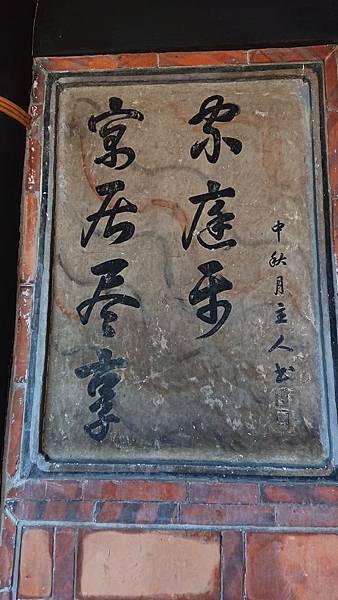 家庭平
居尽享
中秋月主人書